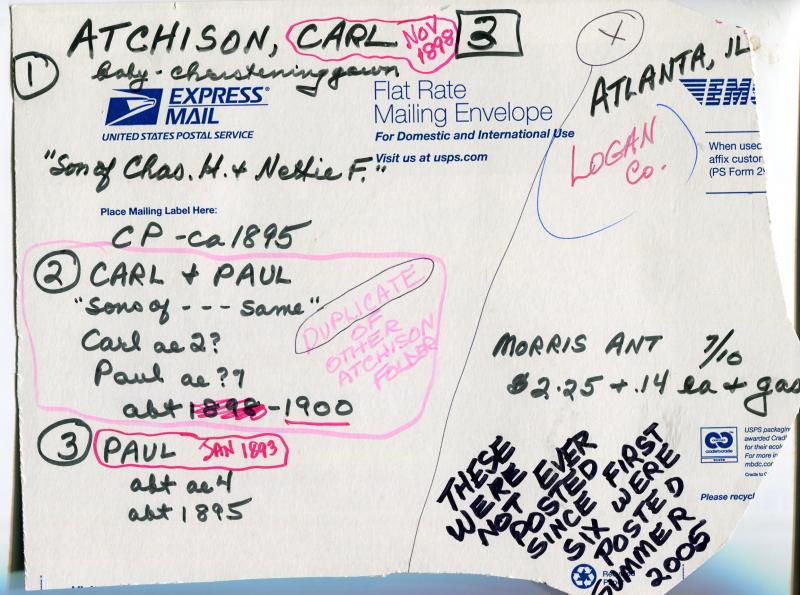 ATCHISON, CARL NOV 1898 3
① baby - christening gown
EXPRESS MAIL
UNITED STATES POSTAL SERVICE
Flat Rate
Mailing Envelope
For Domestic and International Use
Visit us at usps.com
X
ATLANTA, IL
EMS
LOGAN
CO.
When used
affix custom
(PS Form 29
"Son of Chas. H. + Nettie F."
Place Mailing Label Here:
CP - ca 1895
② CARL + PAUL
"Sons of - - - same"
Carl ae 2?
Paul ae ??
abt 1898 - 1900
DUPLICATE
OF
OTHER
ATCHISON
FOLDER
③ PAUL JAN 1893
abt ae 4
abt 1895
MORRIS ANT 7/10
$2.25 + .14 ea + gas
THESE
WERE
NOT EVER
POSTED
SINCE FIRST
SIX WERE
POSTED
SUMMER
2005
USPS packaging
awarded Cradl
for their ecol
For more in
mbdc.co
Please recycl